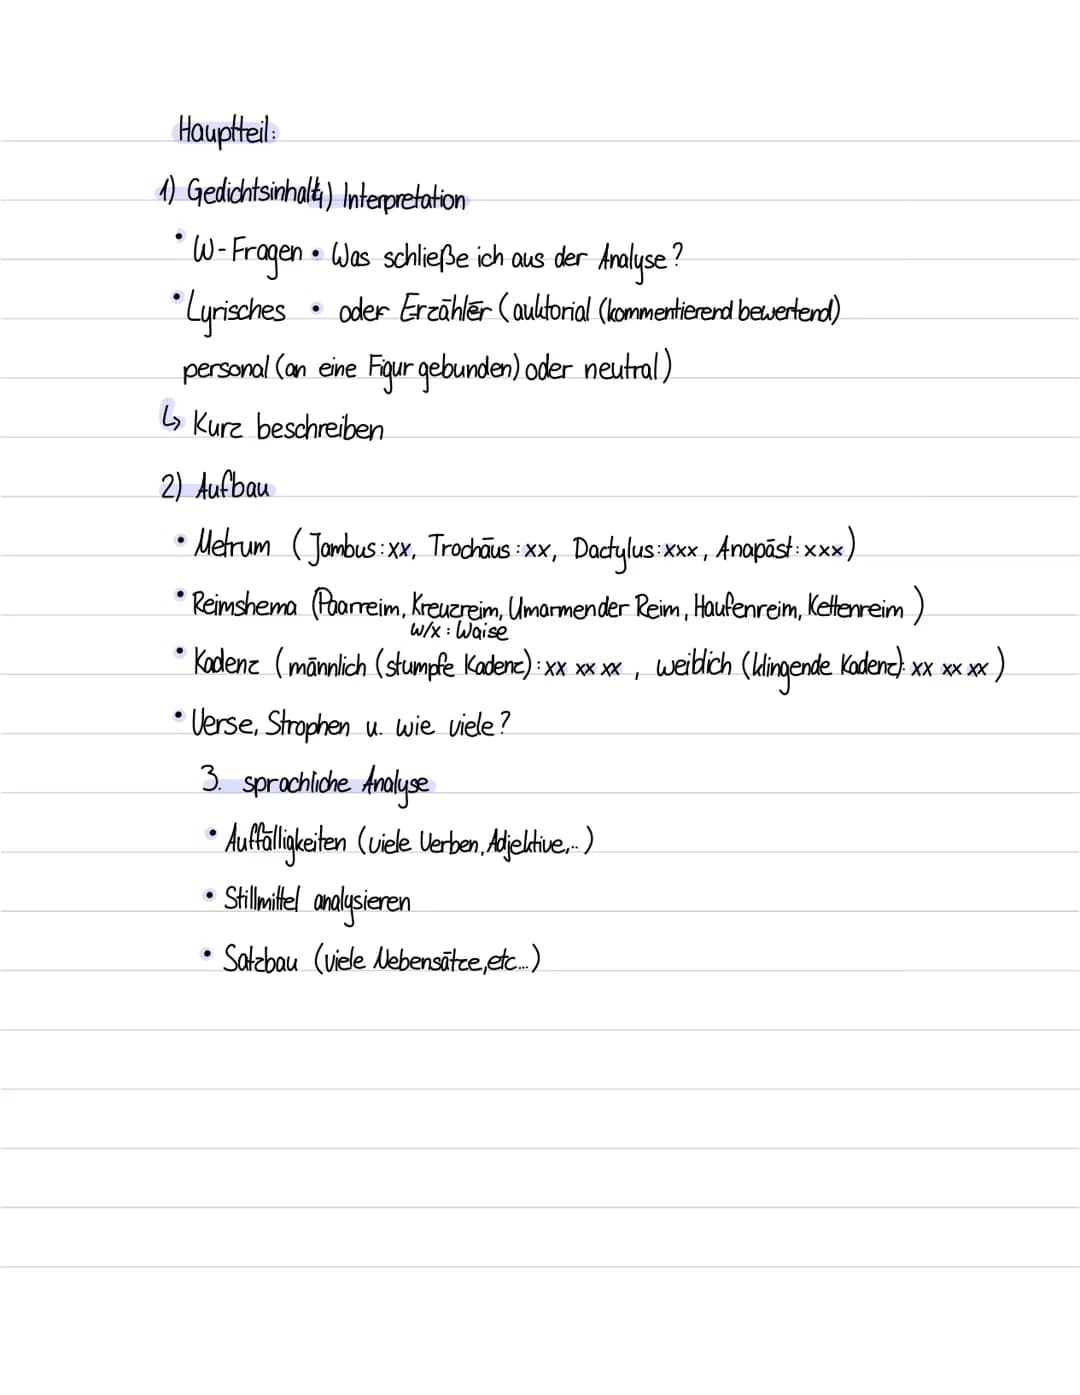 Hauptteil:
1) Gedichtsinhalt4) Interpretation
• W-Fragen • Was schließe ich aus der Analyse?
• Lyrisches • oder Erzähler (auktorial (kommentierend bewertend)
personal (an eine Figur gebunden) oder neutral)
↳ Kurz beschreiben
2) Aufbau
• Metrum (Jambus: xx, Trochäus: xx, Dactylus: xxx, Anapäst: xxx)
• Reimshema (Paarreim, Kreuzreim, Umarmender Reim, Haufenreim, Kettenreim)
w/x: Waise
• Kadenz (männlich (stumpfe Kadenz): xx xx xx, weiblich (klingende Kadenz): xx xx xx)
• Verse, Strophen u. wie viele?
3. sprachliche Analyse
• Auffälligkeiten (viele Verben, Adjektive,..)
• Stillmittel analysieren
• Satzbau (viele Nebensätze, etc...)